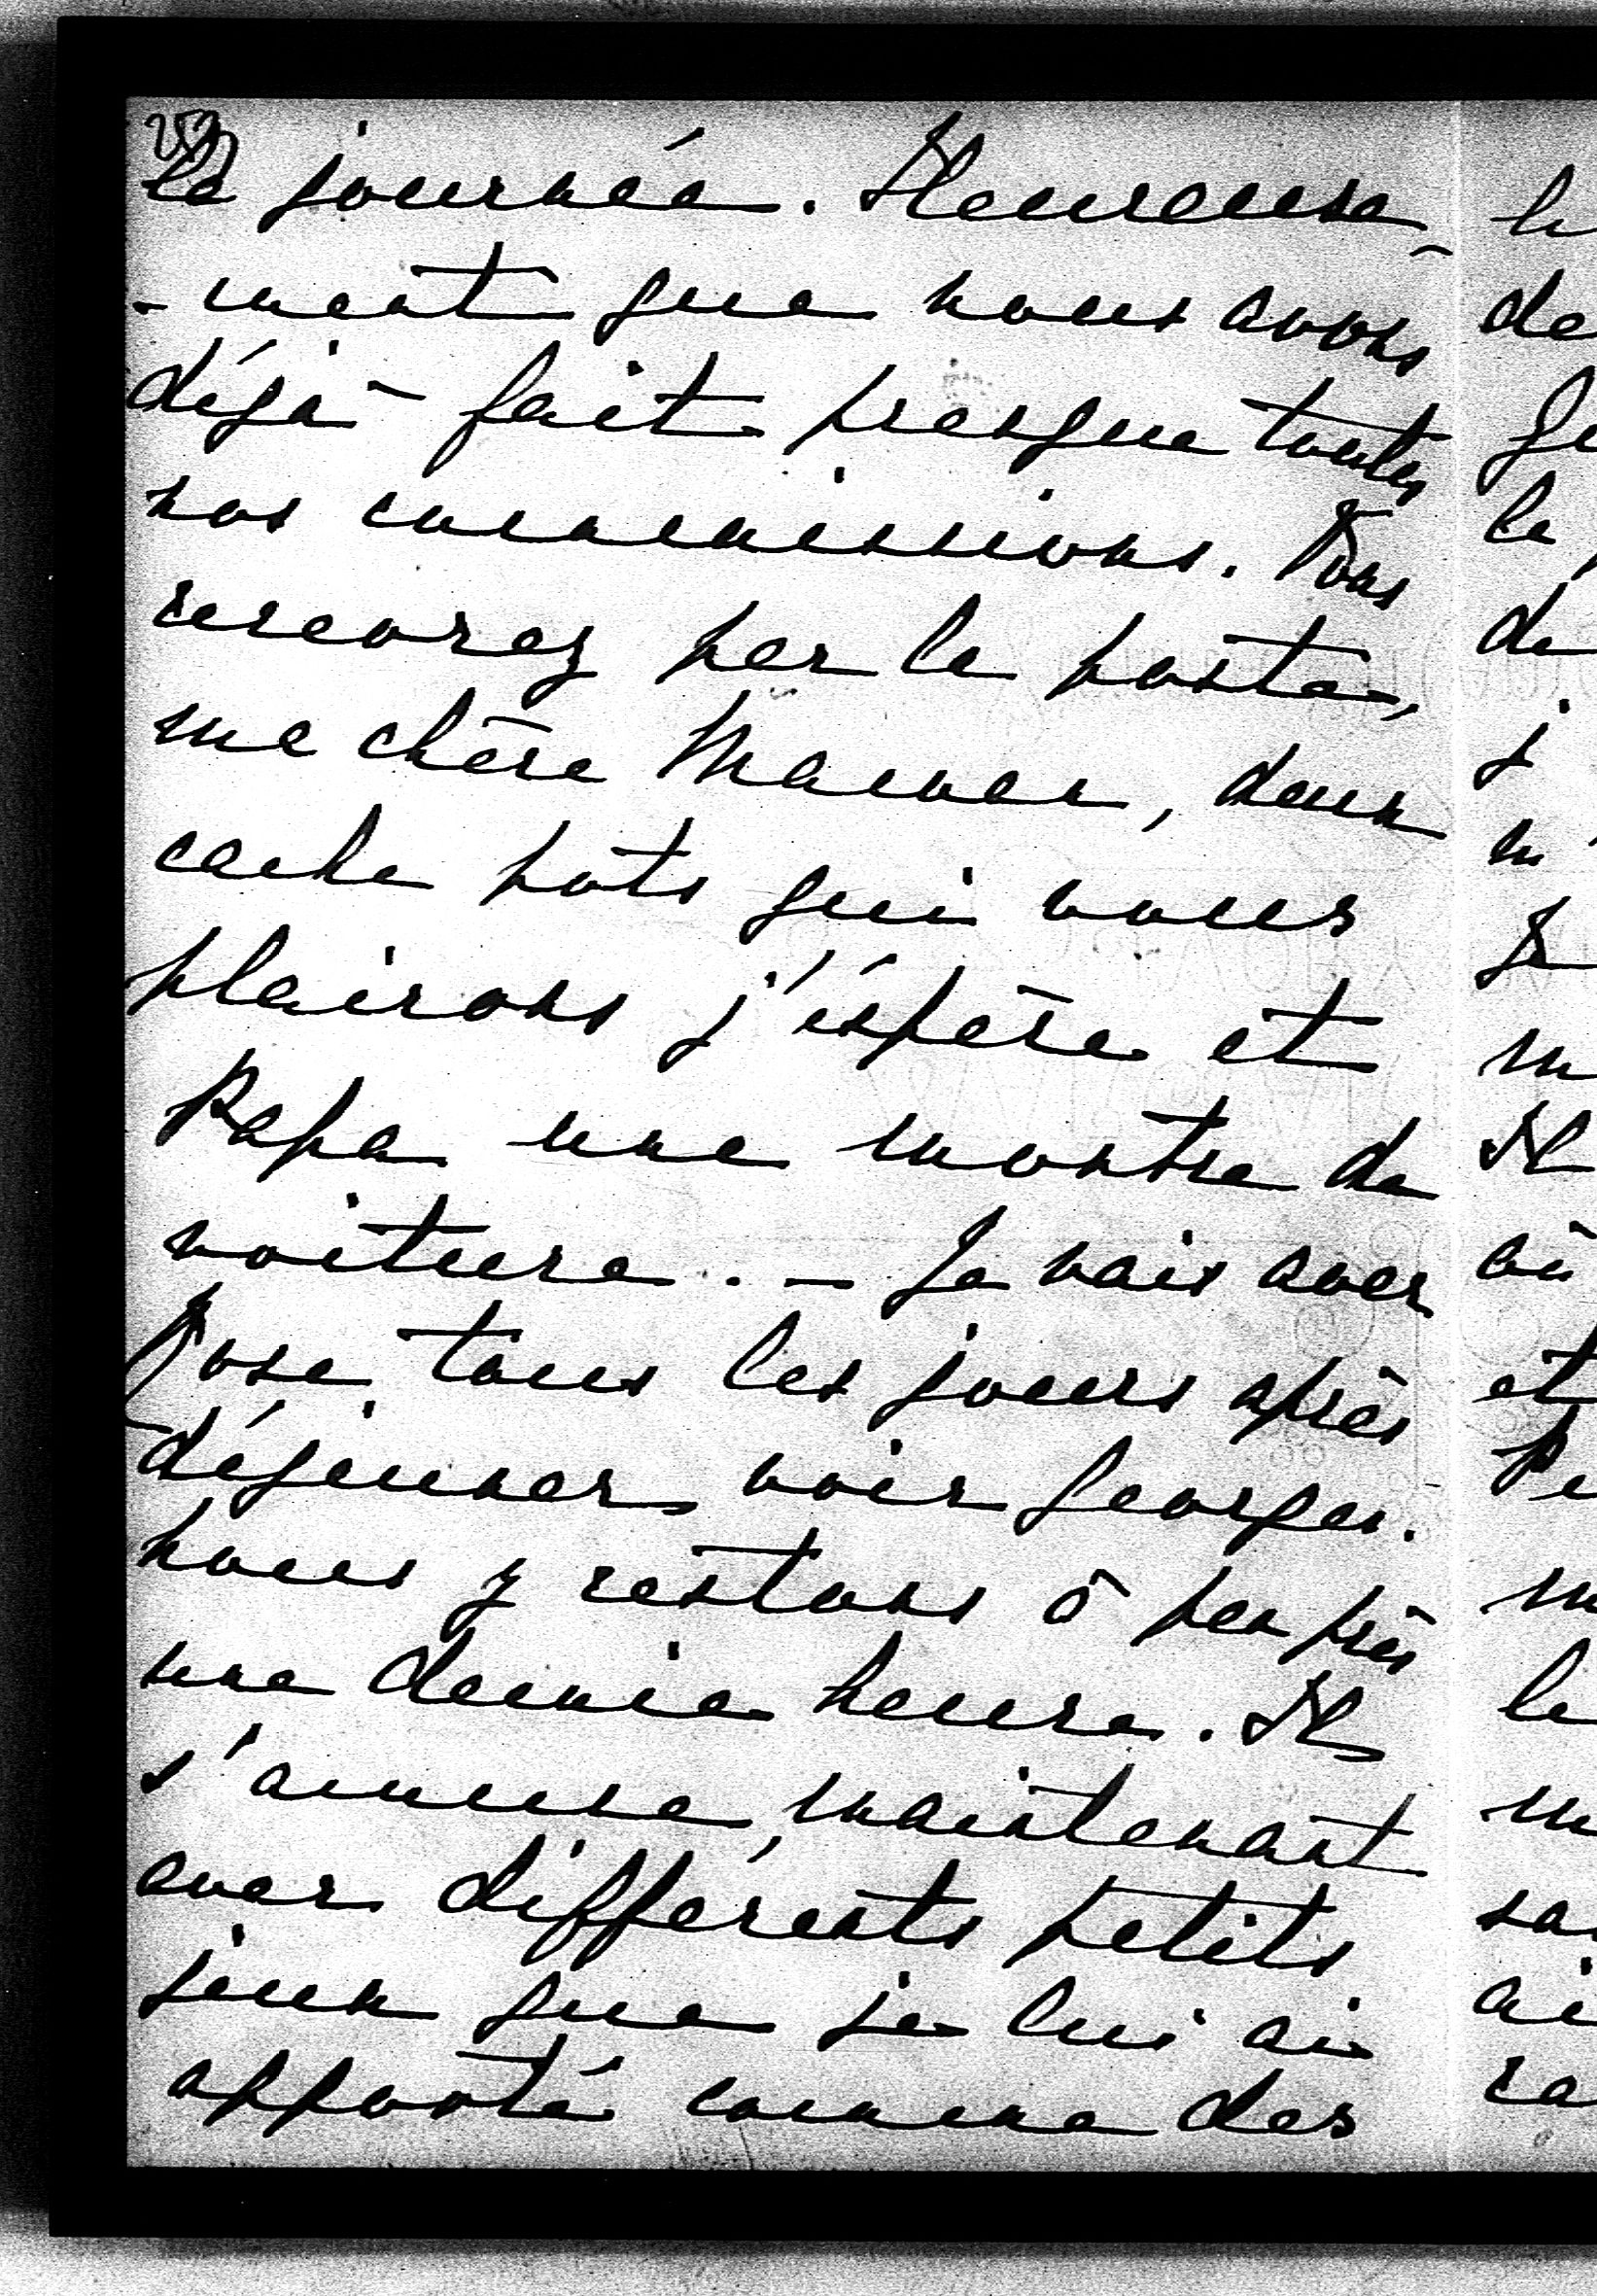 252
la journée. Heureuse-
-ment que nous avons
déjà fait presque toutes
nos commissions. Vous
recevrez par la poste,
ma chère Maman, deux
cache pots qui vous
plairons j'éspère et
Papa une montre de
voiture. - Je vais avec
Rose tous les jours après
déjeuner voir Georges.
Nous y restons à peu près
une demie heure. Il
s'amuse, maintenant
avec différents petits
jeux que je lui ai
apporté comme des